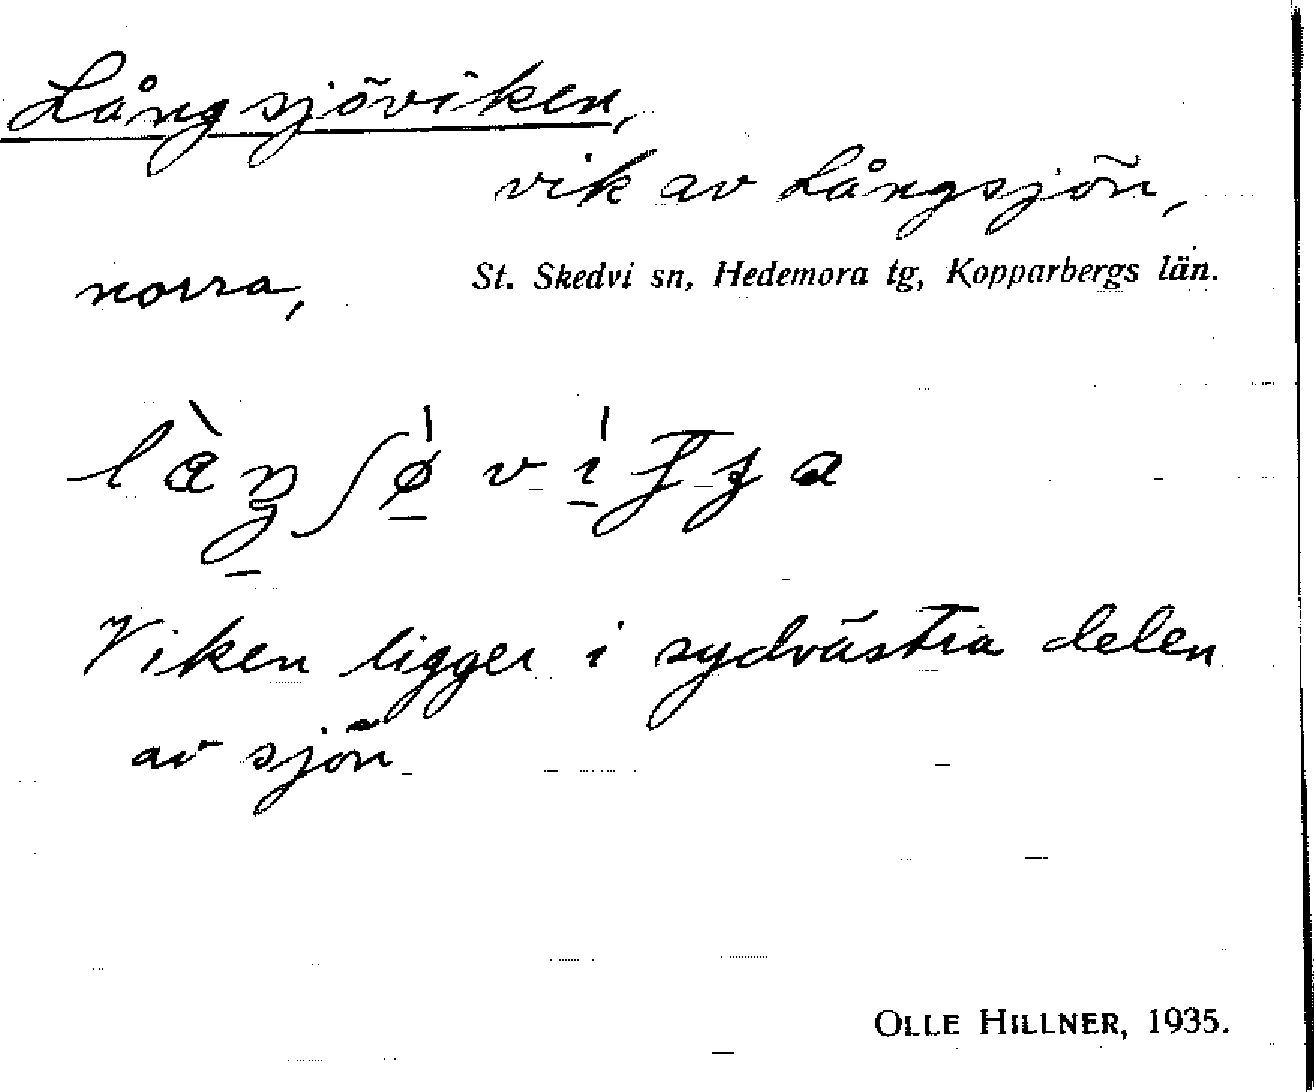 Långsjöviken,
vik av Långsjön,
norra,
St. Skedvi sn, Hedemora tg, Kopparbergs län.
Viken ligger i sydvästra delen
av sjön
OLLE HILLNER, 1935.